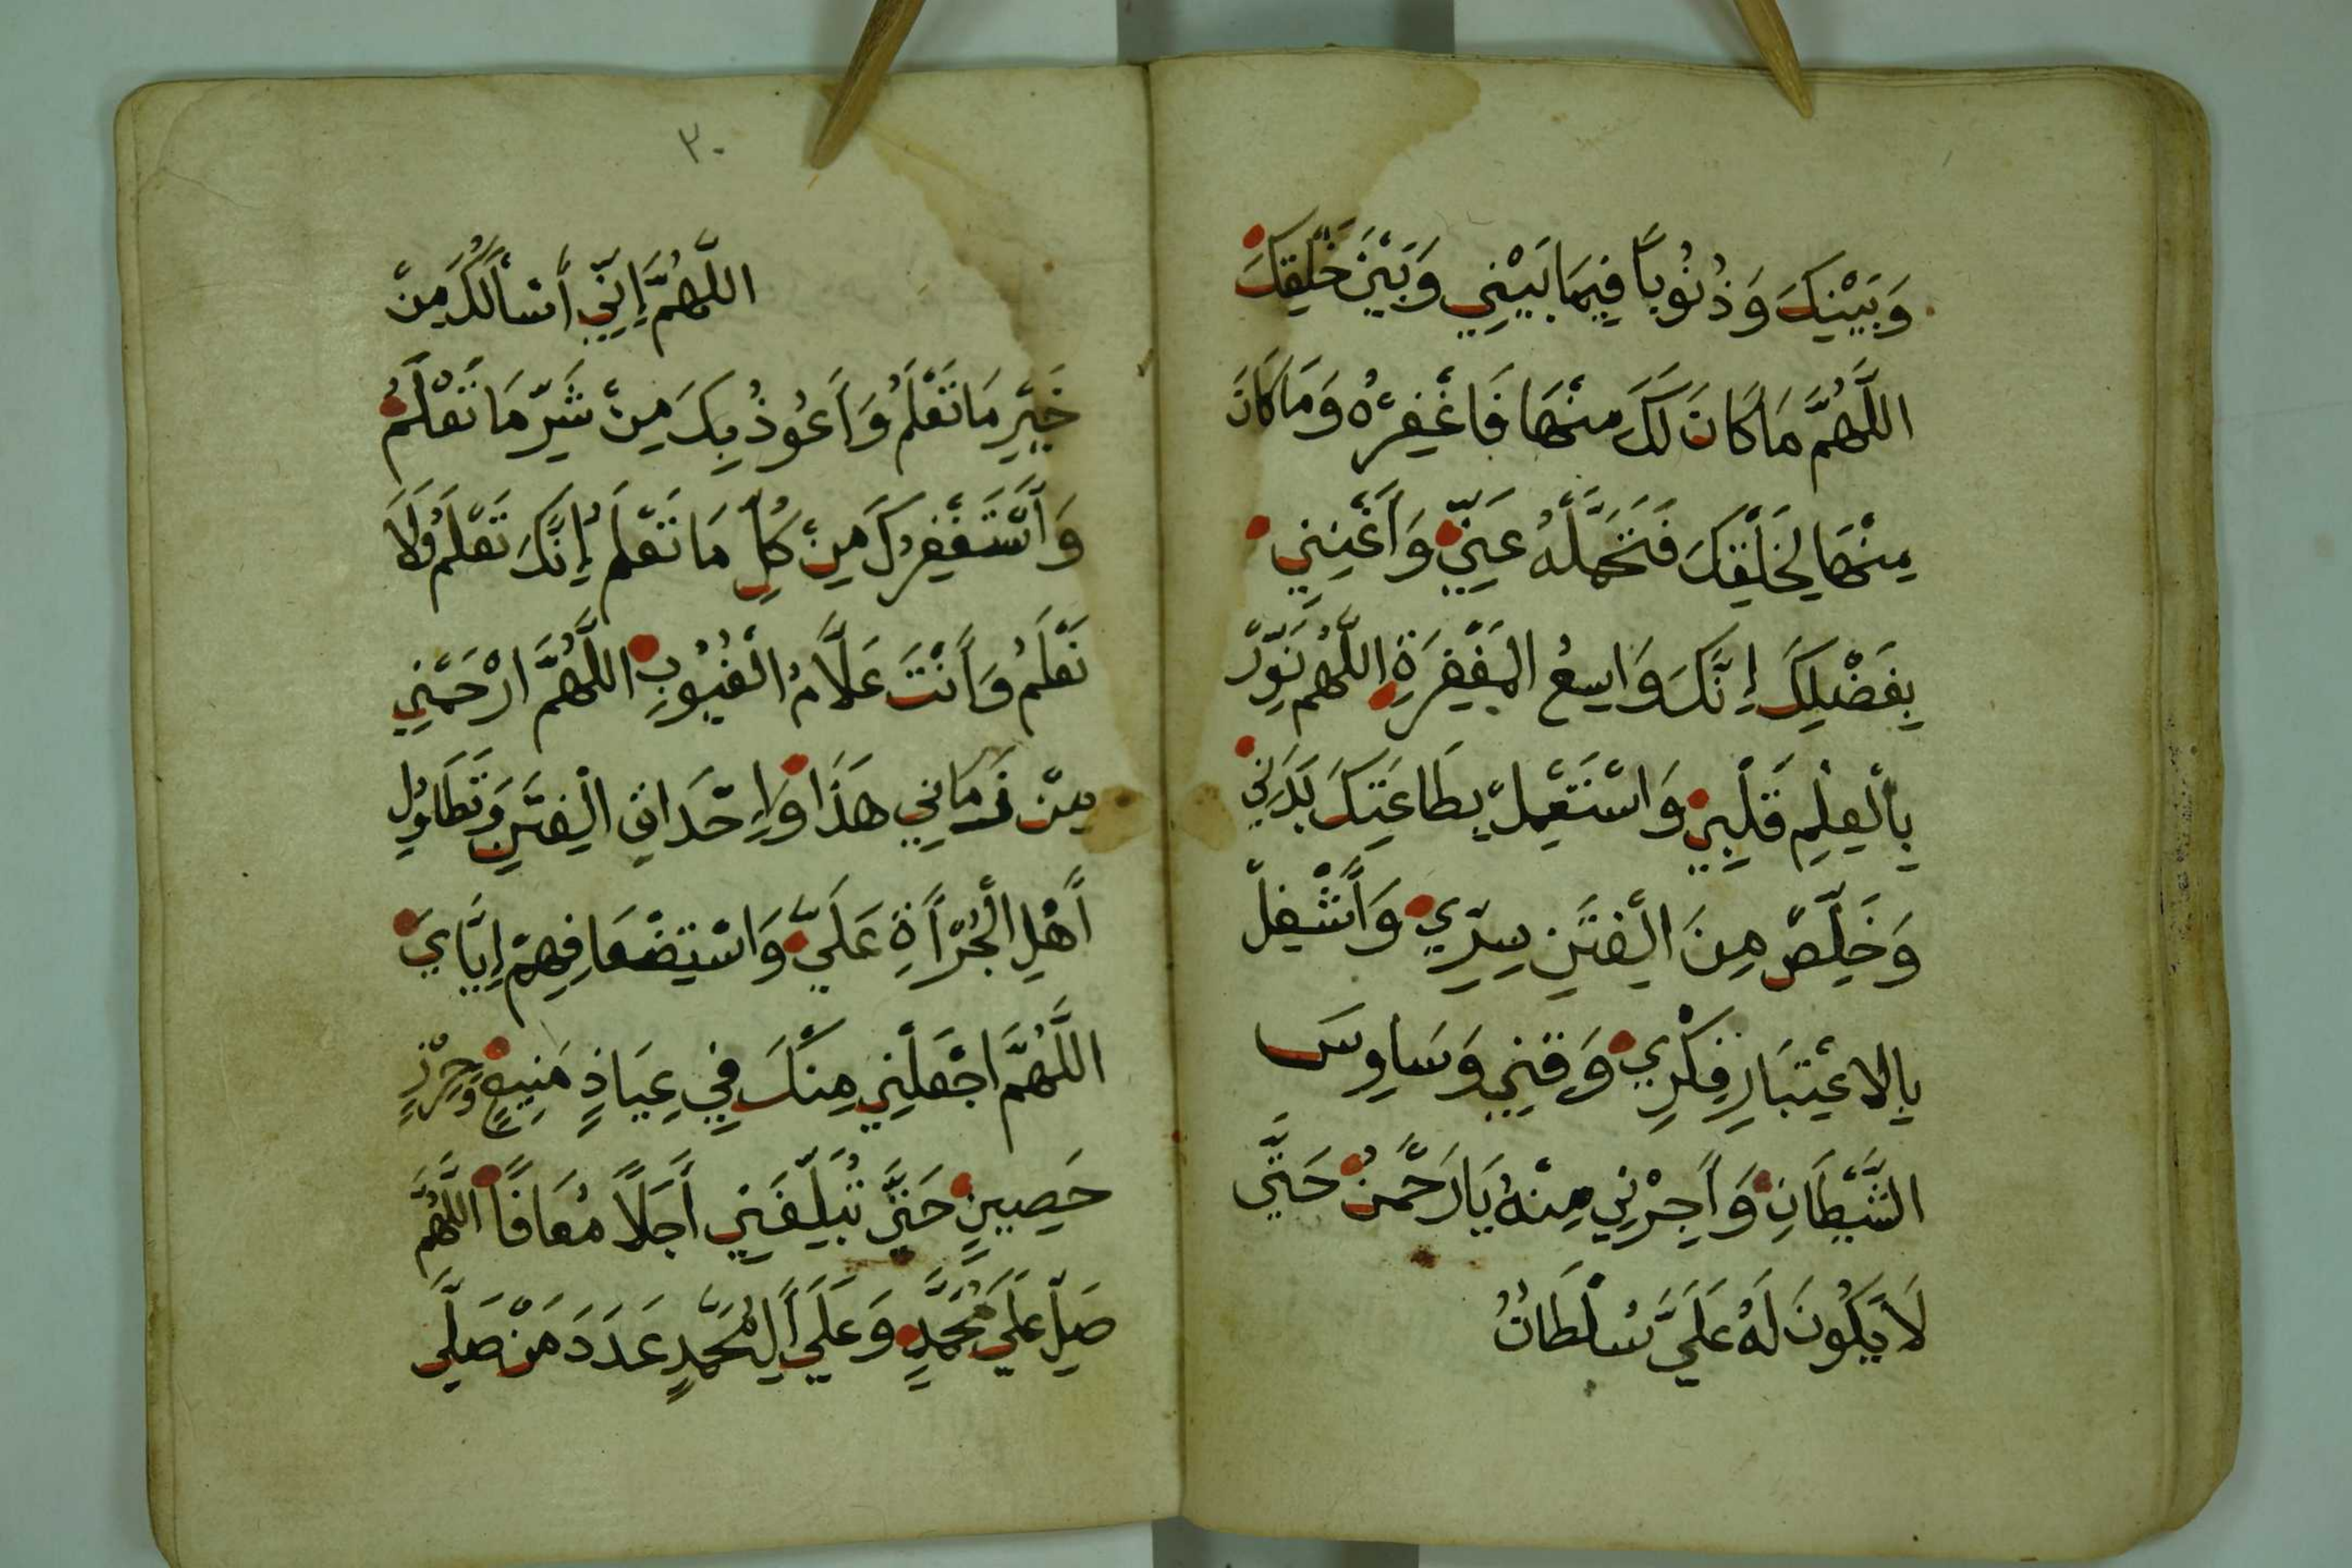 وَبَيْنَكَ وَذُنُوباً فِيمَا بَيْنِي وَبَيْنَ خَلْقِكَ
اللَّهُمَّ مَا كَانَ لَكَ مِنْهَا فَاغْفِرْهُ وَمَا كَانَ
مِنْهَا لِخَلْقِكَ فَتَحَمَّلْهُ عَنِّي وَأَغْنِنِي
بِفَضْلِكَ إِنَّكَ وَاسِعُ الْمَغْفِرَةِ اللَّهُمَّ نَوِّرْ
بِالْعِلْمِ قَلْبِي وَاسْتَعْمِلْ بِطَاعَتِكَ بَدَنِي
وَخَلِّصْ مِنَ الْفِتَنِ سِرِّي وَأَشْغِلْ
بِالِاعْتِبَارِ فِكْرِي وَقِنِي وَسَاوِسَ
الشَّيْطَانِ وَأَجِرْنِي مِنْهُ يَا رَحْمَنُ حَتَّى
لَا يَكُونَ لَهُ عَلَيَّ سُلْطَانٌ
٣٠
اللَّهُمَّ إِنِّي أَسْأَلُكَ مِنْ
خَيْرِ مَا تَعْلَمُ وَأَعُوذُ بِكَ مِنْ شَرِّ مَا تَعْلَمُ
وَأَسْتَغْفِرُكَ مِنْ كُلِّ مَا تَعْلَمُ إِنَّكَ تَعْلَمُ وَلَا
نَعْلَمُ وَأَنْتَ عَلَّامُ الْغُيُوبِ اللَّهُمَّ ارْحَمْنِي
مِنْ زَمَانِي هَذَا وَإِحْدَاقِ الْفِتَنِ وَتَطَاوُلِ
أَهْلِ الْجُرْأَةِ عَلَيَّ وَاسْتِضْعَافِهِمْ إِيَّايَ
اللَّهُمَّ اجْعَلْنِي مِنْكَ فِي عِيَاذٍ مَنِيعٍ وَحِرْزٍ
حَصِينٍ حَتَّى تُبَلِّغَنِي أَجَلاً مُعَافًا اللَّهُمَّ
صَلِّ عَلَى مُحَمَّدٍ وَعَلَى أَلِ مُحَمَّدٍ عَدَدَ مَنْ صَلَّى